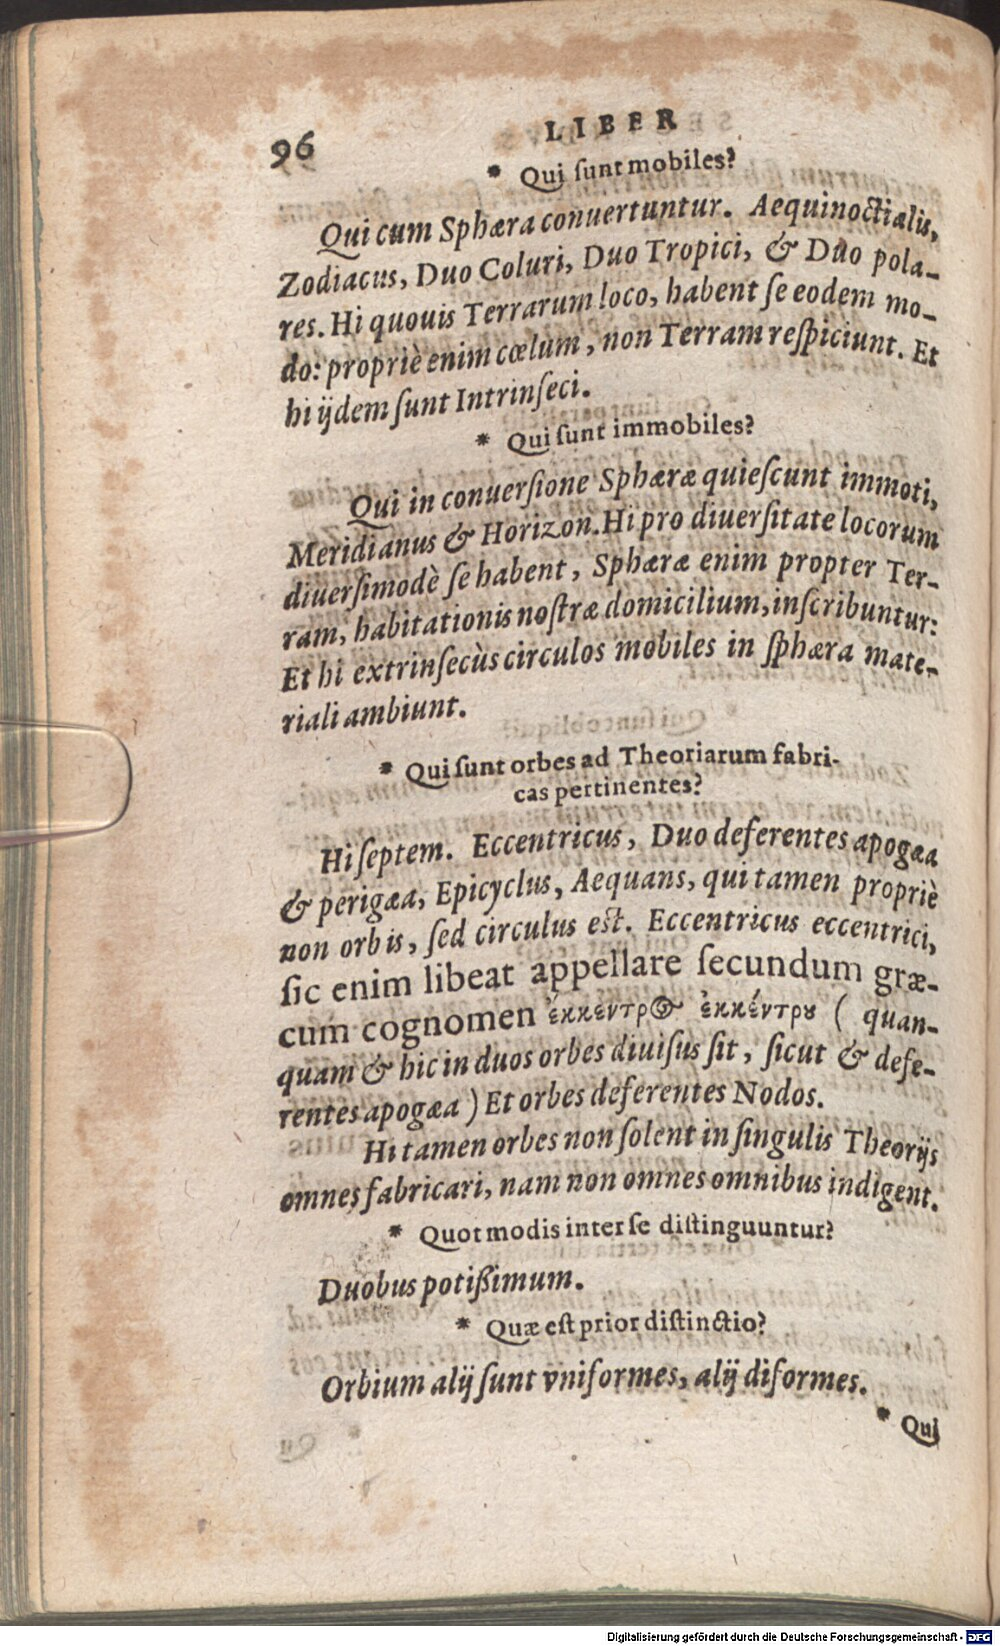 96 LIBER
* Qui ſunt mobiles?
Qui cum Sphæra conuertuntur. Aequinoctialis,
Zodiacus, Duo Coluri, Duo Tropici, & Duo pola-
res. Hi quouis Terrarum loco, habent ſe eodem mo-
do: propriè enim cœlum, non Terram reſpiciunt. Et
hi ijdem ſunt Intrinſeci.
* Qui ſunt immobiles?
Qui in conuerſione Sphæræ quieſcunt immoti,
Meridianus & Horizon. Hi pro diuerſitate locorum
diuerſimodè ſe habent, Sphæræ enim propter Ter-
ram, habitationis noſtræ domicilium, inſcribuntur:
Et hi extrinſecùs circulos mobiles in ſphæra mate-
riali ambiunt.
* Qui ſunt orbes ad Theoriarum fabri-
cas pertinentes?
Hi ſeptem. Eccentricus, Duo deferentes apogæa
& perigæa, Epicyclus, Aequans, qui tamen propriè
non orbis, ſed circulus est. Eccentricus eccentrici,
ſic enim libeat appellare ſecundum græ-
cum cognomen ἔκκεντρος ἐκκέντρου ( quan-
quam & hic in duos orbes diuiſus ſit, ſicut & defe-
rentes apogæa ) Et orbes deferentes Nodos.
Hi tamen orbes non ſolent in ſingulis Theorijs
omnes fabricari, nam non omnes omnibus indigent.
* Quot modis inter ſe diſtinguuntur?
Duobus potißimum.
* Quæ eſt prior diſtinctio?
Orbium alij ſunt vniformes, alij diformes.
* Qui
Digitalisierung gefördert durch die Deutsche Forschungsgemeinschaft - DFG